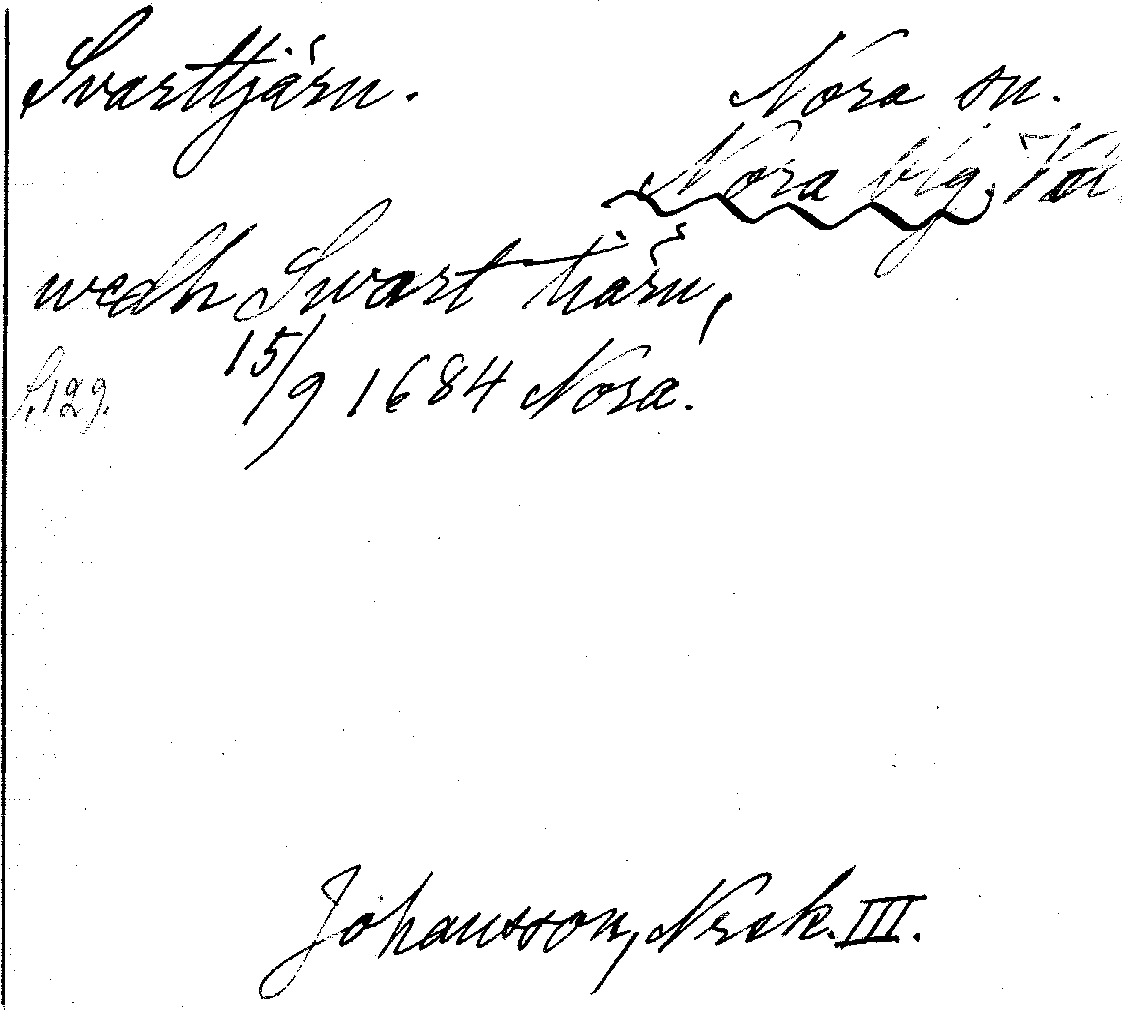 Svarttjärn. Nora sn.
Nora blg. Vstl
wedh Svart tiärn,
s. 129. 15/9 1684 Nora.
Johansson, Noraskog. III.